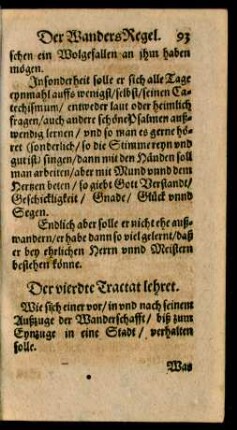 Der WandersRegel. 93
schen ein Wolgefallen an jhm haben
mögen.
Insonderheit solle er sich alle Tage
eynmahl auffs wenigst/selbst/seinen Ca-
techismum/ entweder laut oder heimlich
fragen/auch andere schöne Psalmen auß-
wendig lernen/ vnd so man es gerne hö-
ret (sonderlich/so die Stimme reyn vnd
gut ist/ singen/dann mit den Händen soll
man arbeiten/aber mit Mund vnnd dem
Hertzen beten/ so giebt Gott Verstandt/
Geschickligkeit / Gnade/ Glück vnnd
Segen.
Endlich aber solle er nicht ehe auß-
wandern/er habe dann so viel gelernt/daß
er bey ehrlichen Herrn vnnd Meistern
bestehen könne.
Der vierdte Tractat lehret.
Wie sich einer vor/ in vnd nach seinem
Außzuge der Wanderschafft/ biß zum
Eynzuge in eine Stadt/ verhalten
solle.
Was